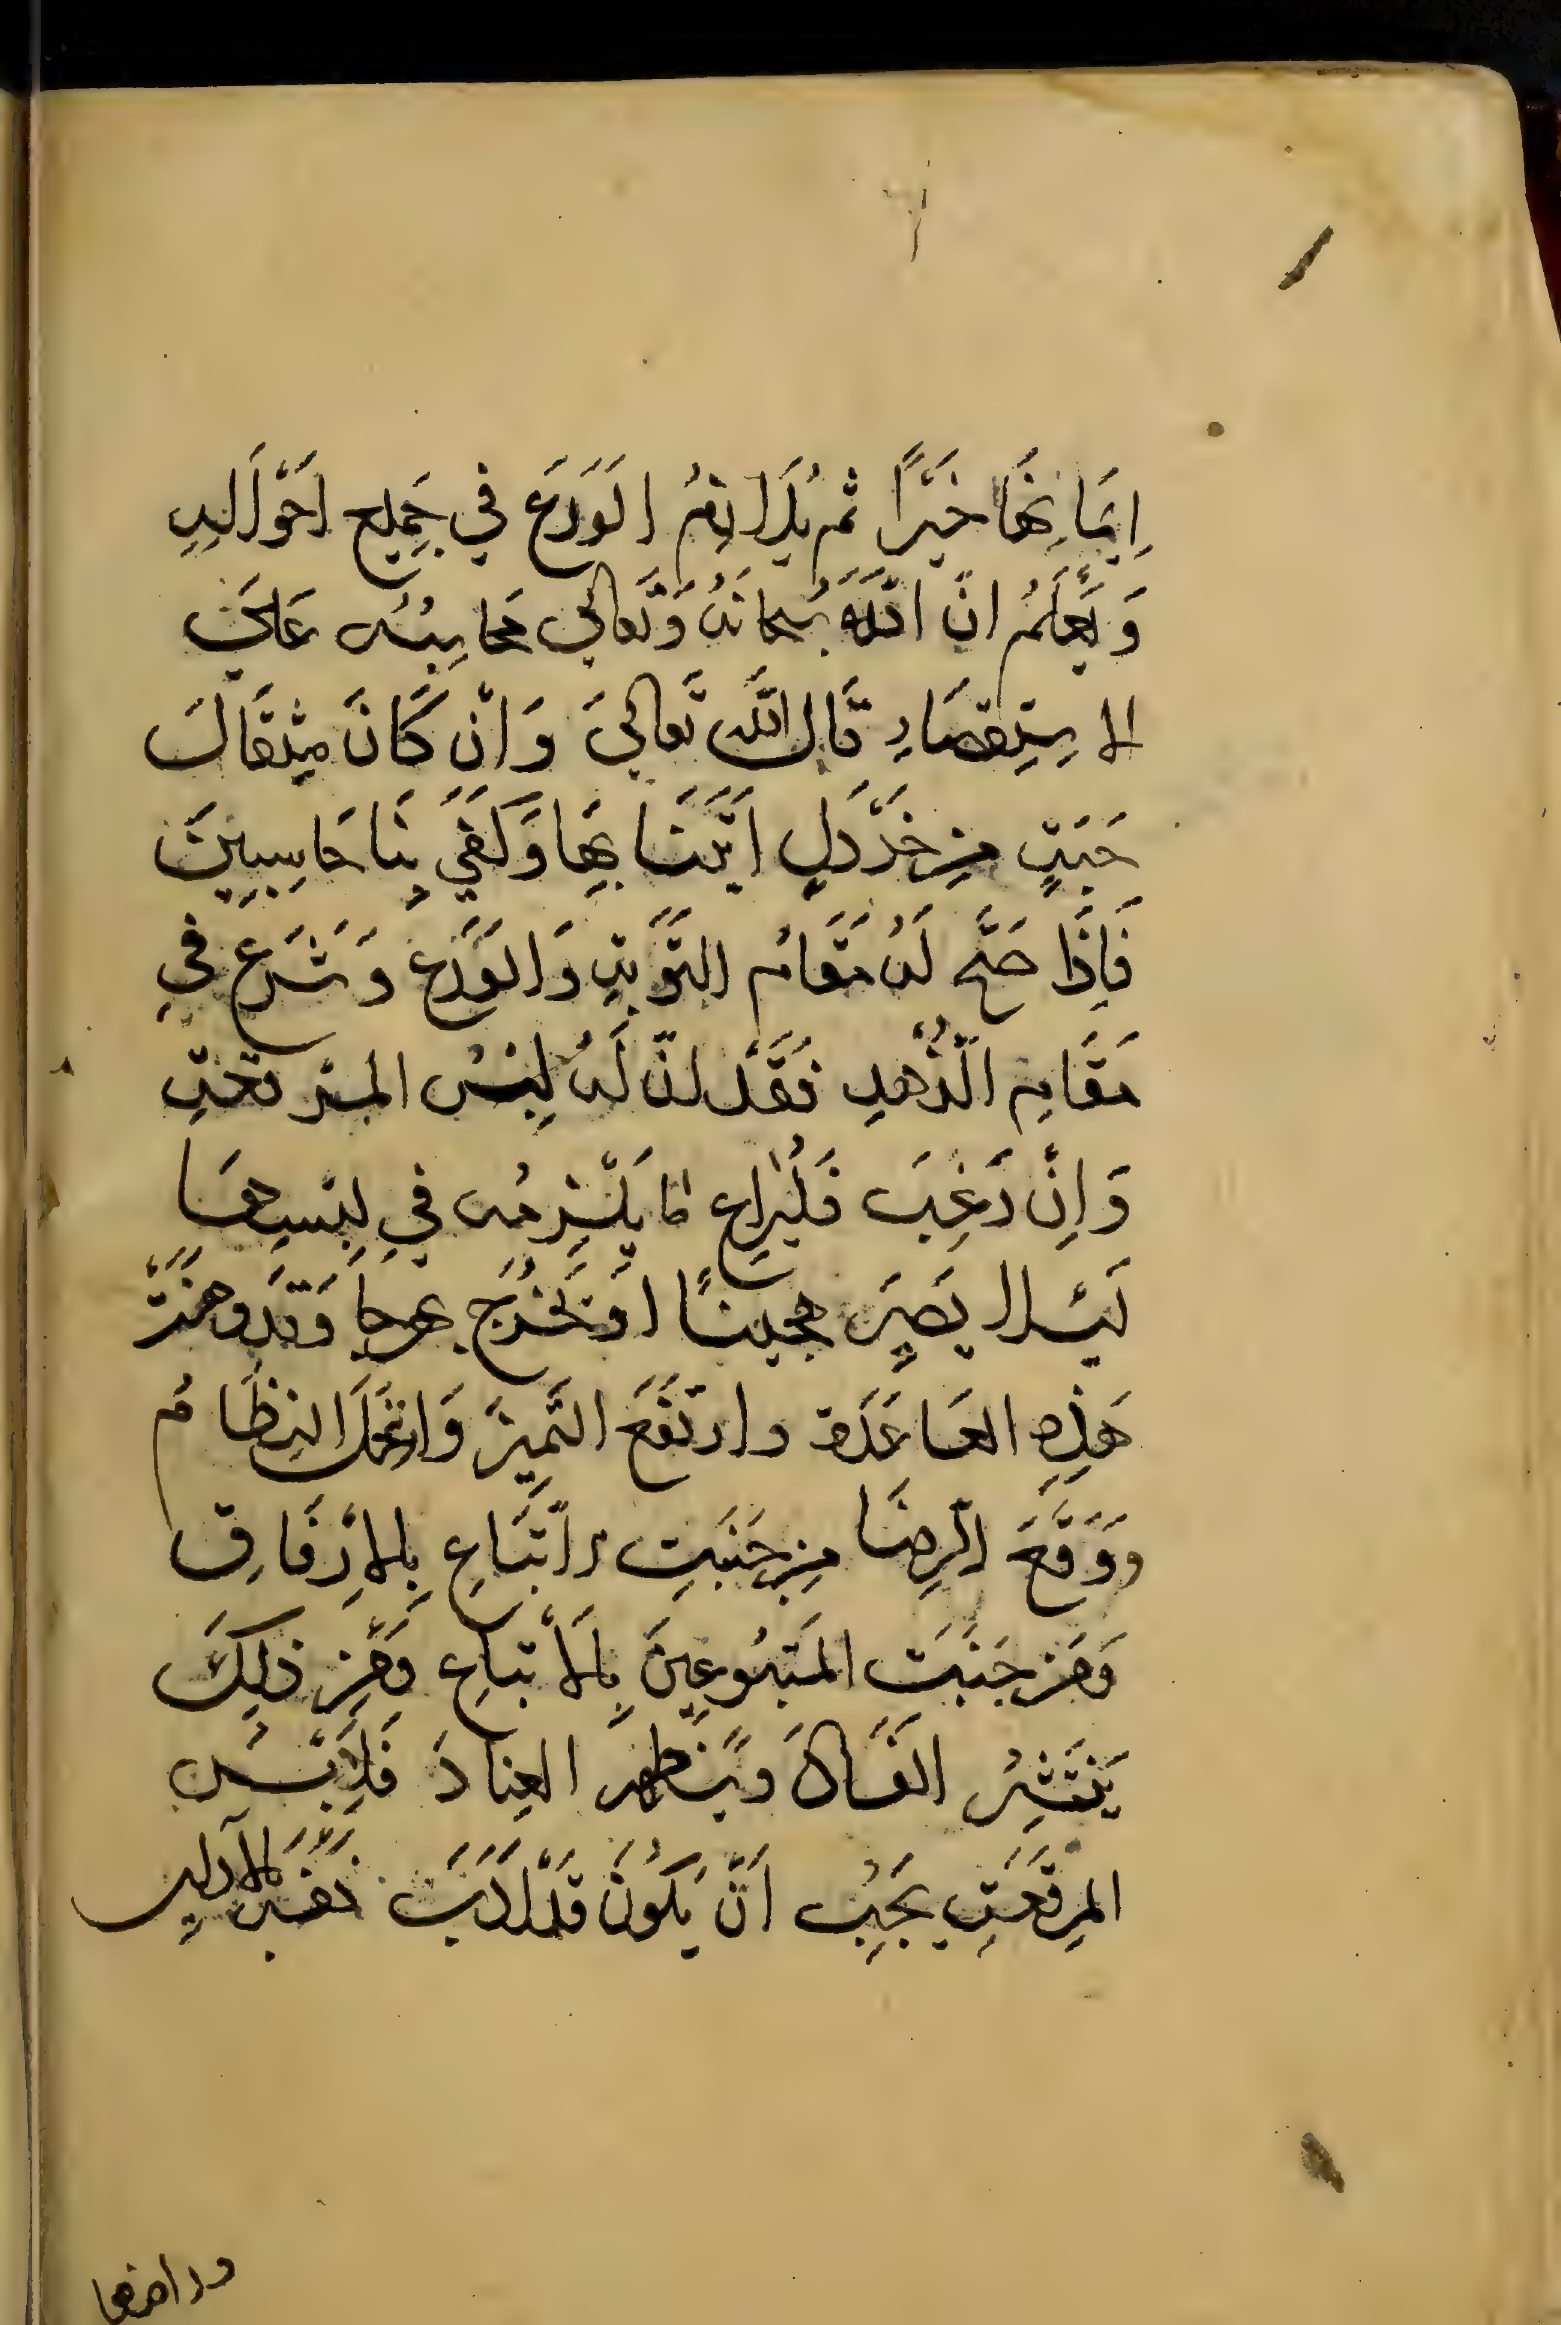 اِيمَانِهَا خَيْرًا ثم يُلَازِمُ الوَرَعَ في جَمِيعِ اَحْوَالِهِ
وَيَعْلَمُ انّ اللّهَ سُبحانَهُ وَتَعالى محَاسِبُه عَلَى
الاسْتِقصَاءِ قَال اللّه تَعالىَ وَانْ كَانَ مِثقَالَ
حَبَةٍ مِن خَرْدَلٍ اتَيْنَا بِهَا وَكَفَى بِنَا حَاسِبِينَ
فَاِذَا صَحَّ لَهُ مَقَامُ التَوْبَةِ وَالوَرَعِ وَشَرَعَ فيِ
مَقَامِ الزُّهدِ فقَد انّ لَهُ لِبْسُ المرقعَةِ
وَاِنْ رَغِبَ فَلْيُرَاعِ مَا يَلْزِمُه فيِ لِبْسِهَا
لَيْلا يَصِيَر هجِينًا اوْ يَخْرُجَ بَهرجاً وَقَد وهنَتْ
هَذِهِ القَاعَدَة وارتفَعَ التَمييز وَانحَلَ النِظَامُ
ووَقَعَ الرِضَا مِن جَنَبَةِ الاتبَاعِ بِالارْفَاقِ
وَمن جَنَبَةِ المَتبُوعِينَ بِالاتباعِ وَمِن ذلِكَ
يَنتَشِرُ الفَسَادَ وَيَظهَرُ العِنَادَ فَلَابِسُ
المرقَعَةِ يَجِبُ اَنْ يَكُونَ قَدْ ادَبَ نفسَه بالآدابِ
وراضها